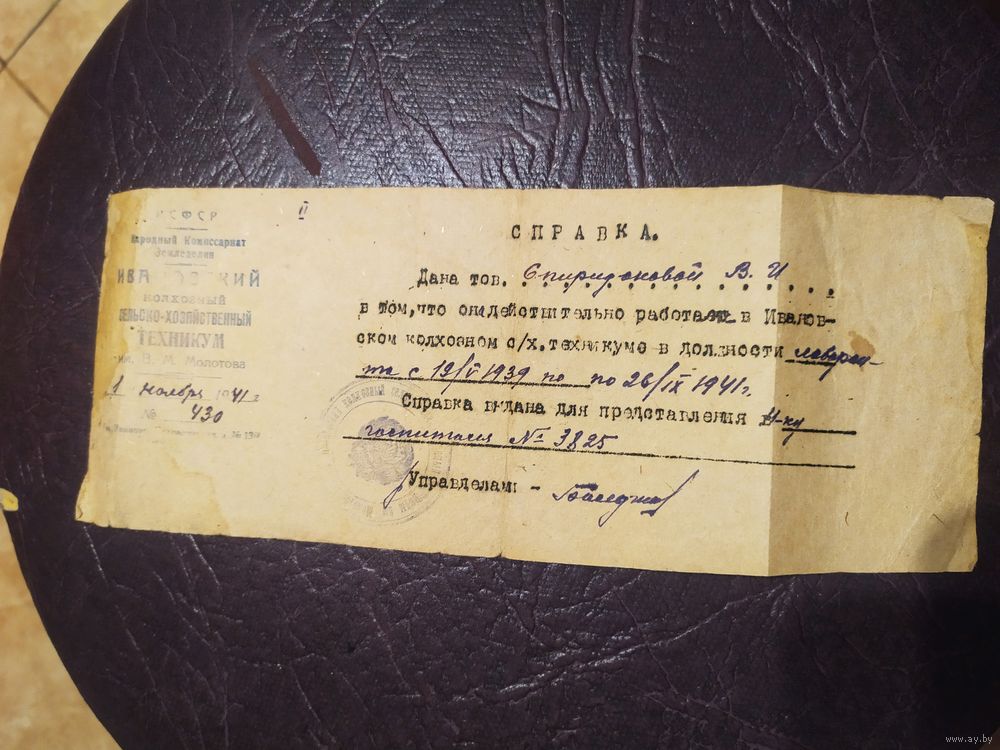 РСФСР
Народный Комиссариат
Земледелия
ИВАНОВСКИЙ
КОЛХОЗНЫЙ
СЕЛЬСКО-ХОЗЯЙСТВЕННЫЙ
ТЕХНИКУМ
им. В. М. Молотова
1 Ноября 1941 г
№ 430
II
СПРАВКА.
Дана тов. Спиридоновой В. И.
в том, что он действительно работает в Иванов-
ском колхозном с/х. техникуме в должности лаборан-
та с 19/VI 1939 по по 26/IX 1941 г.
Справка выдана для представления Н-ку
госпиталя № 3825
Управделами -
www.ay.by